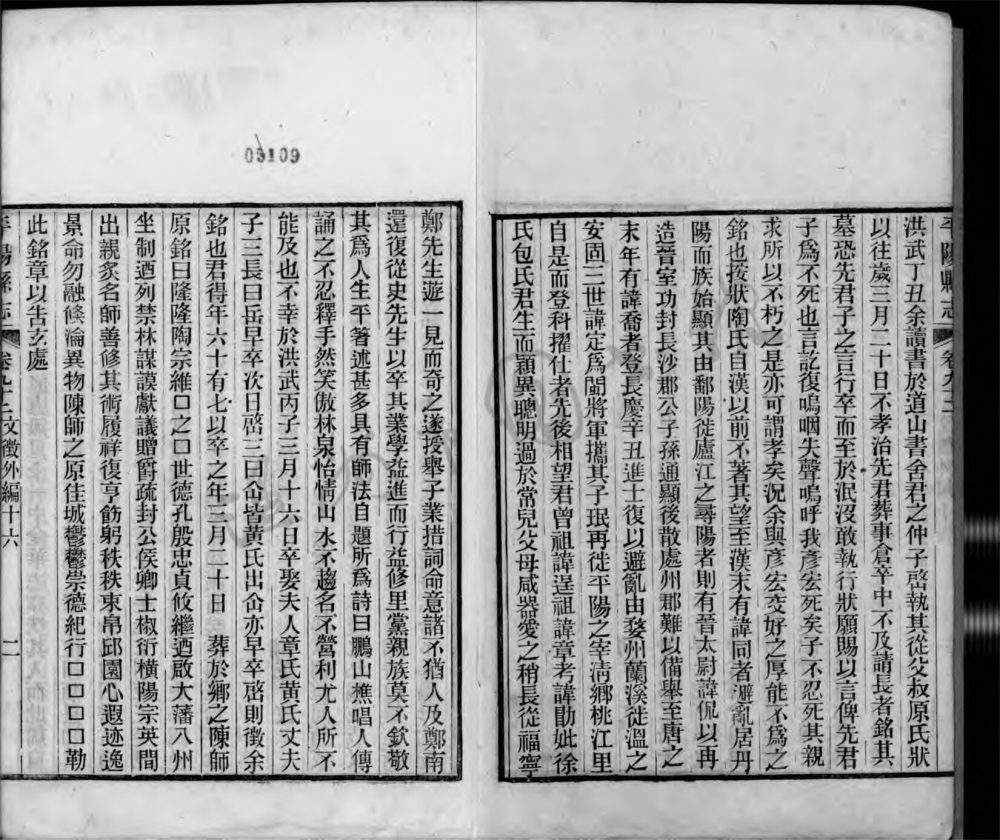 05109
平陽縣志 卷九十二
洪武丁丑余讀書於道山書舍君之仲子啓執其從父叔原氏狀
以往歲三月二十日不孝治先君葬事倉卒中不及請長者銘其
墓恐先君子之言行卒而至於泯沒敢執行狀願賜以言俾先君
子爲不死也言訖復嗚咽失聲嗚呼我彥宏死矣子不忍死其親
求所以不朽之是亦可謂孝矣況余與彥宏交好之厚能不爲之
銘也按狀陶氏自漢以前不著其望至漢末有諱同者避亂居丹
陽而族始顯其由鄱陽徙廬江之尋陽者則有晉太尉諱侃以再
造晉室功封長沙郡公子孫通顯後散處州郡難以備舉至唐之
末年有諱喬者登長慶辛丑進士復以避亂由婺州蘭溪徙溫之
安固三世諱定爲閩將軍攜其子珉再徙平陽之宰清鄉桃江里
自是而登科擢仕者先後相望君曾祖諱逞祖諱章考諱勛妣徐
氏包氏君生而穎異聰明過於常兒父母咸器愛之稍長從福寧
鄭先生遊一見而奇之遂授舉子業措詞命意諸不猶人及鄭南
還復從史先生以卒其業學益進而行益修里黨親族莫不欽敬
其爲人生平著述甚多具有師法自題所爲詩曰鵬山樵唱人傳
誦之不忍釋手然笑傲林泉怡情山水不趨名不營利尤人所不
能及也不幸於洪武丙子三月十六日卒娶夫人章氏黃氏丈夫
子三長曰岳早卒次曰啓三曰㟁皆黃氏出㟁亦早卒啓則徵余
銘也君得年六十有七以卒之年三月二十日　葬於鄉之陳師
原銘曰隆隆陶宗維口之口世德孔殷忠貞攸繼迺啟大藩八州
坐制迺列禁林謀謨獻議贈爵疏封公侯卿士椒衍橫陽宗英間
出親炙名師善修其術履祥復亨飭躬秩秩東帛邱園心遐迹逸
景命勿融倏淪異物陳師之原佳城鬱鬱崇德紀行口口口口勒
此銘章以告玄處
平陽縣志 卷九十二 文徵外編十六 二